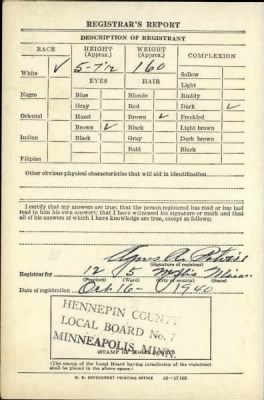 REGISTRAR'S REPORT
DESCRIPTION OF REGISTRANT
RACE HEIGHT (Approx.) WEIGHT (Approx.) COMPLEXION
White ✓ 5-7 1/2 160 Sallow
EYES HAIR Light
Negro Blue Blonde Ruddy
Gray Red Dark ✓
Oriental Hazel Brown ✓ Freckled
Brown ✓ Black Light brown
Indian Black Gray Dark brown
Bald Black
Filipino
Other obvious physical characteristics that will aid in identification
I certify that my answers are true; that the person registered has read or has had read to him his own answers; that I have witnessed his signature or mark and that all of his answers of which I have knowledge are true, except as follows:
Agnes A.
(Signature of registrar)
Registrar for 12 5 Mpls Minn
(Precinct) (Ward) (City or county) (State)
Date of registration Oct. 16 - 1940
HENNEPIN COUNTY
LOCAL BOARD No. 7
MINNEAPOLIS, MINN.
(The stamp of the Local Board having jurisdiction of the registrant shall be placed in the above space.)
U. S. GOVERNMENT PRINTING OFFICE 16-17105